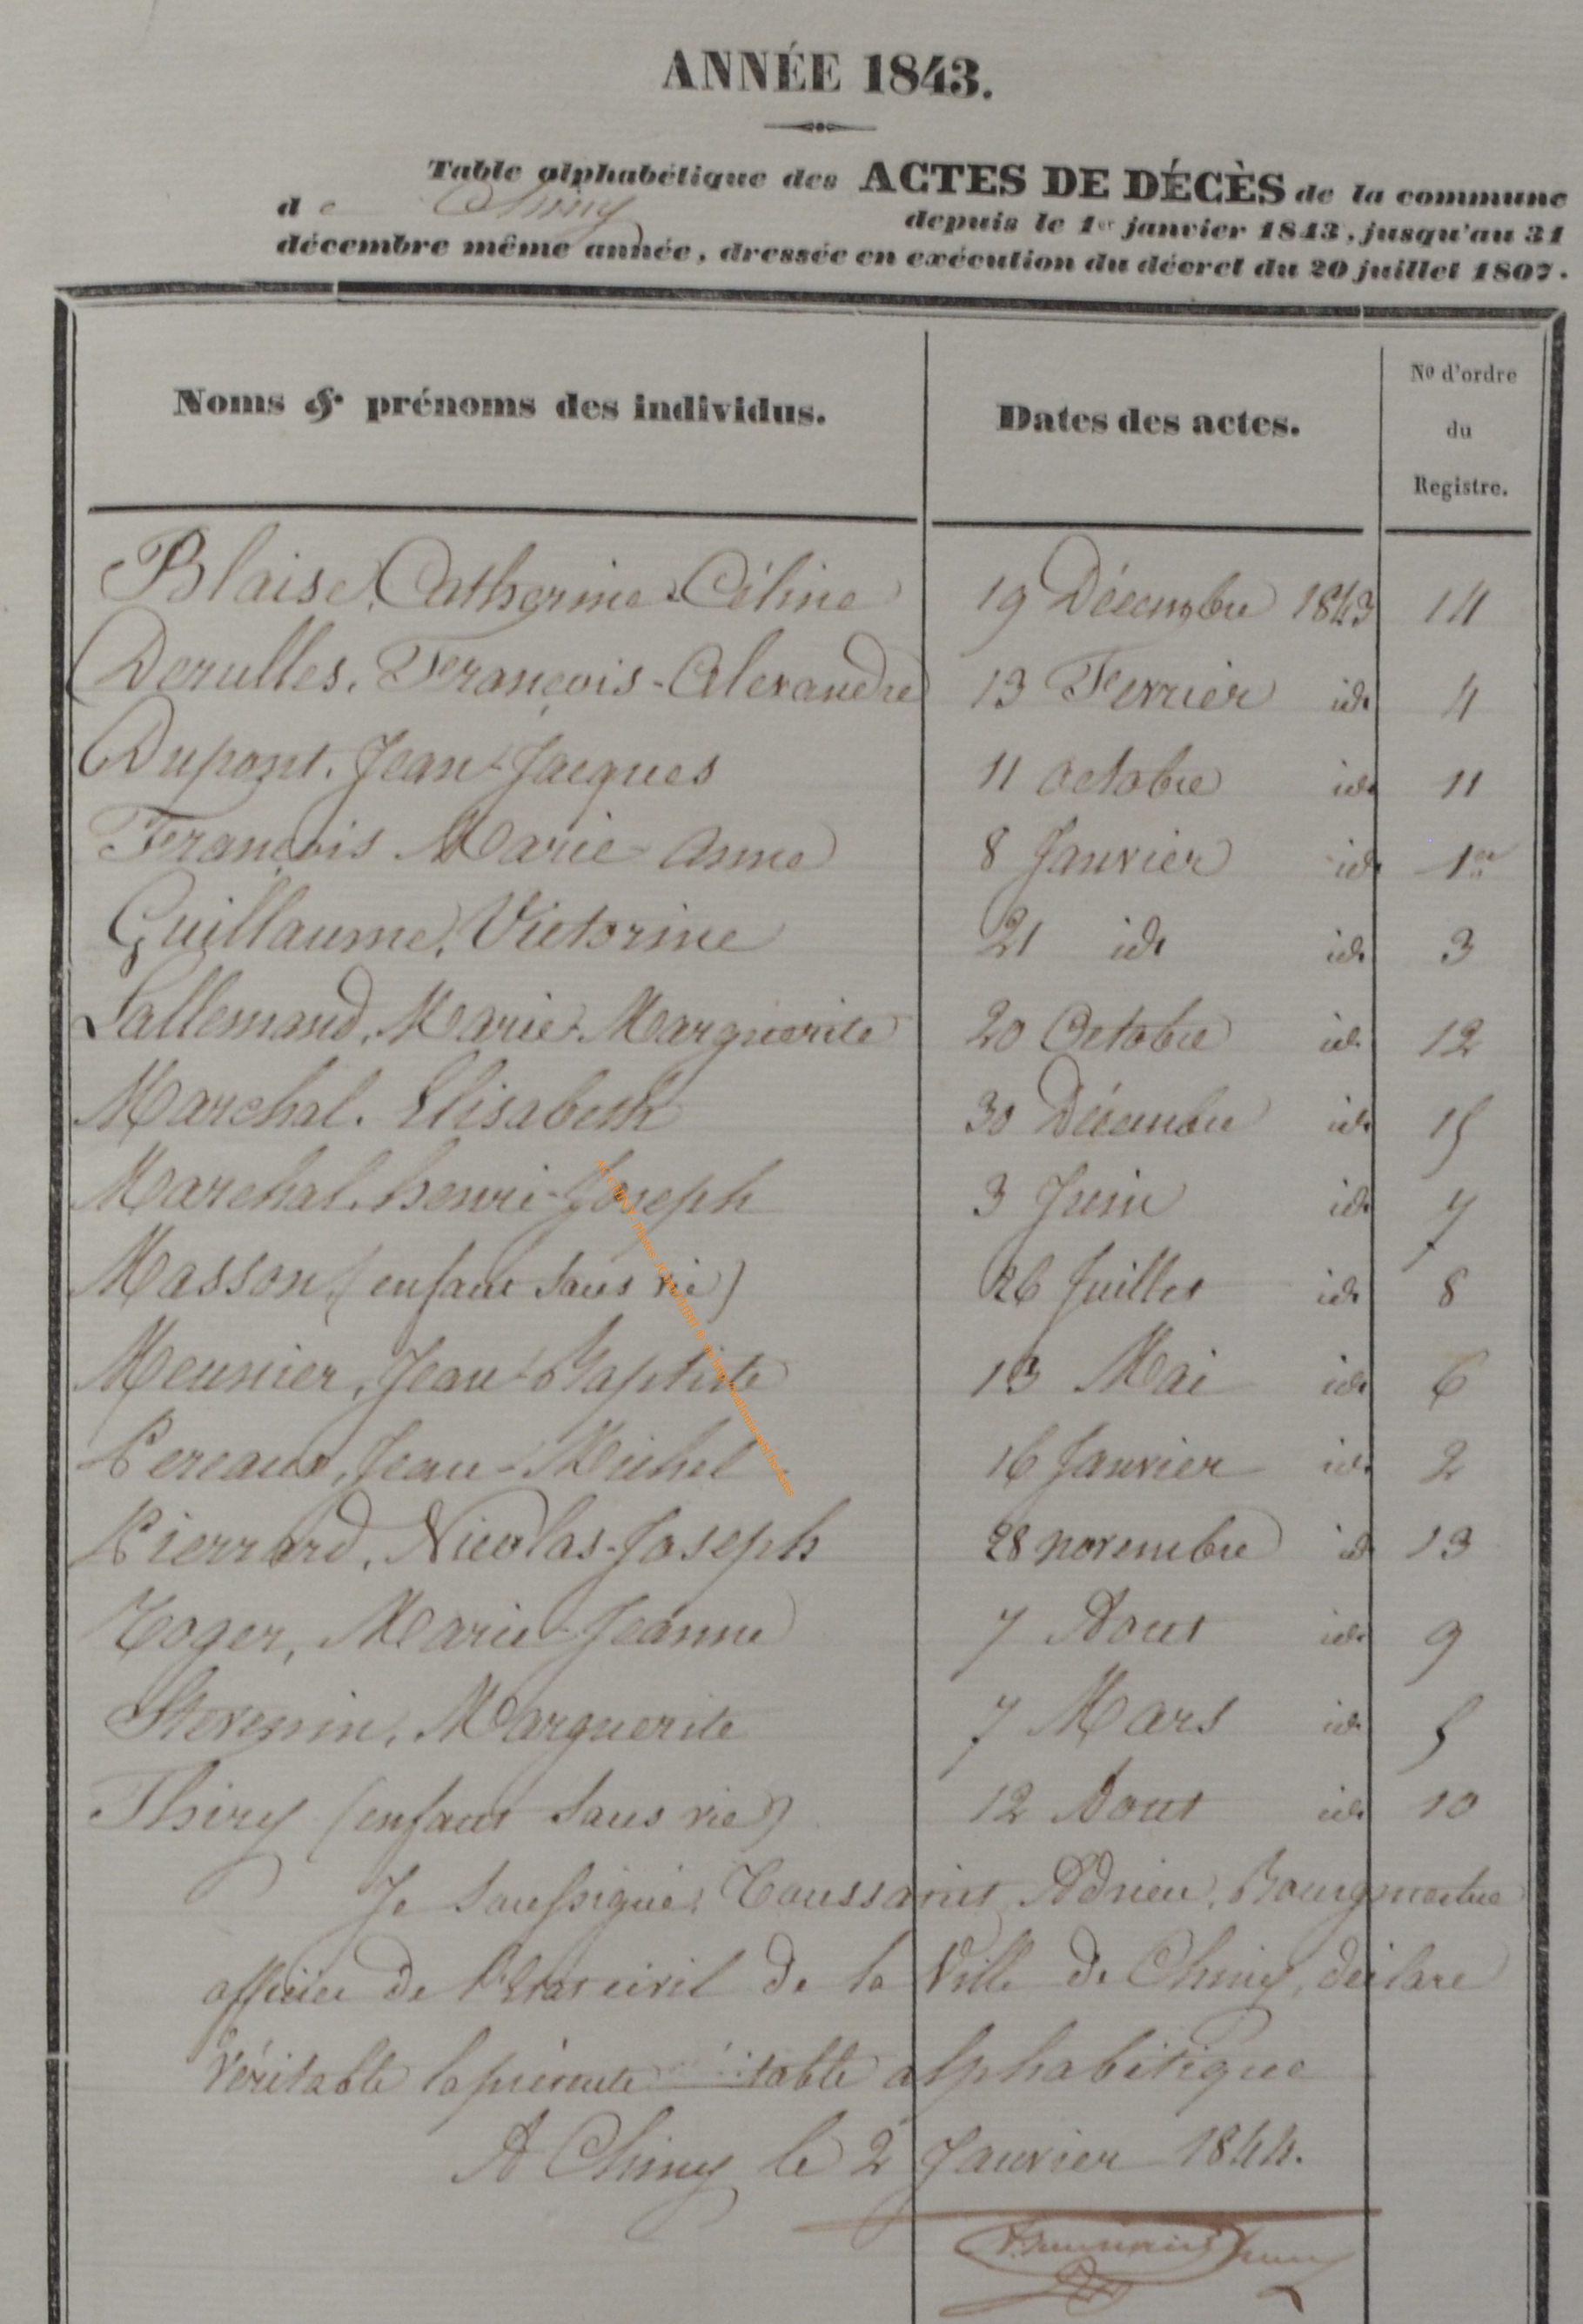 ANNÉE 1843.
Table alphabétique des ACTES DE DÉCÈS de la commune
de Chiny depuis le 1er janvier 1843, jusqu'au 31
décembre même année, dressée en exécution du décret du 20 juillet 1807.
Noms & prénoms des individus. Dates des actes. No d'ordre du Registre.
Blaise, Catherine-Céline 19 Décembre 1843 14
Derulles, François-Alexandre 13 Fevrier id. 4
Dupont, Jean-Jacques 11 Octobre id. 11
François Marie-Anne 8 Janvier id. 1er
Guillaume, Victorine 21 id. id. 3
Lallemand, Marie-Marguerite 20 Octobre id. 12
Marchal. Elisabeth 30 Décembre id. 15
Marchal, henri-Joseph 3 Juin id. 7
Masson (enfant sans vie) 26 Juillet id. 8
Meunier, Jean-Baptiste 13 Mai id. 6
Pereaux, Jean-Michel 16 Janvier id. 2
Pierrard, Nicolas-Joseph 28 novembre id. 13
Roger, Marie-Jeanne 7 Aout id. 9
Stevenin, Marguerite 7 Mars id. 5
Thiry (enfant sans vie) 12 Aout id. 10
Je Soussigné, Toussaint, Adrien, Bourgmestre
officier de l'Etat civil de la Ville de Chiny, déclare
Véritable la présente table alphabétique
A Chiny le 2 Janvier 1844.